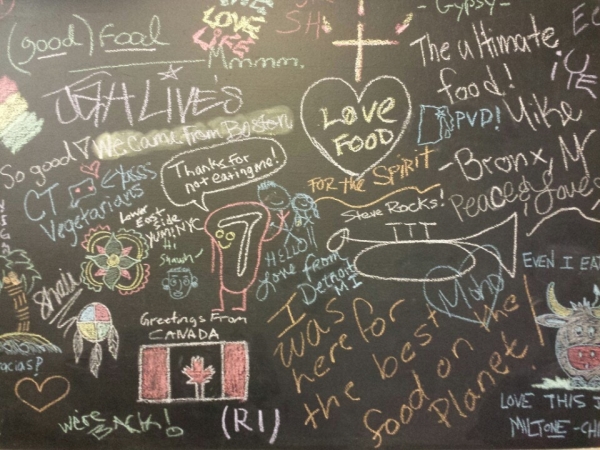 (good) Food
THE
LOVE
LOVE
LIFE
Mmmm.
SH
-Gypsy-
The ultimate
food!
Mike
-Bronx, NY
Peace & Love
PVD!
LOVE
FOOD
JGH LIVE'S
We Came from Boston
So good!
CT
Vegetarians
Thanks for
not eating me!
FOR THE SPIRIT
Steve Rocks!
Lower
East
Side
YUM! NYC
Hi
Shawn
HELLO!
Love from
Detroit
MI
EVEN I EA
Greetings From
CANADA
I
was
here for
the best
food on the
Planet!
LOVE THIS
MILTONE-CHI
we're
BACK!
(RI)